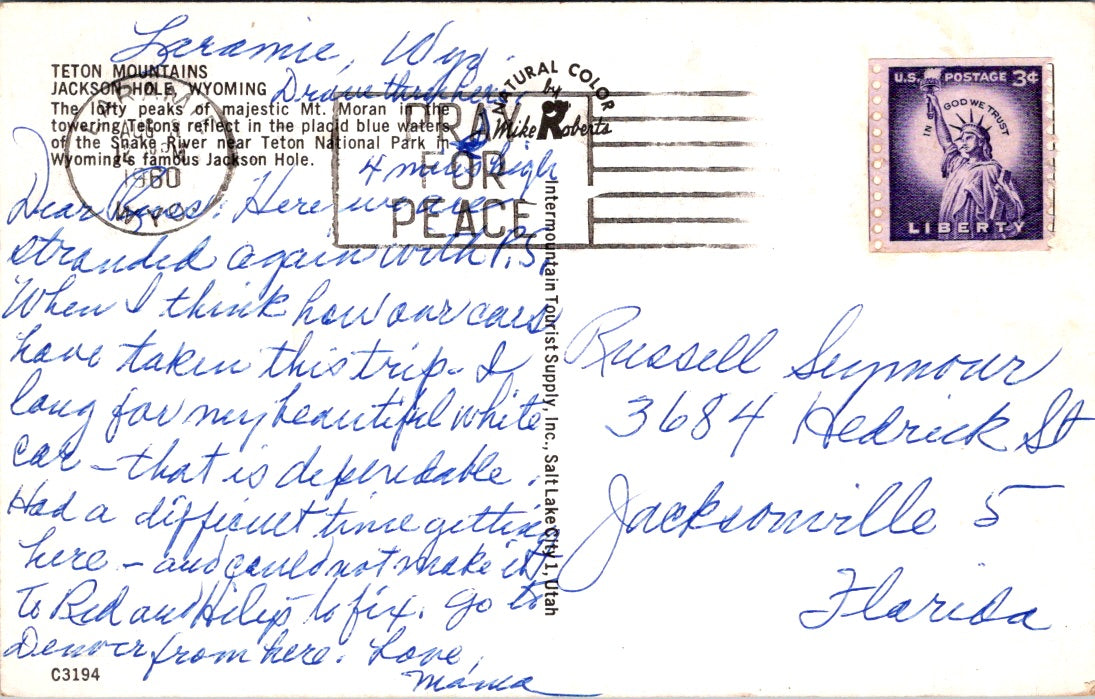 Laramie, Wyo.
TETON MOUNTAINS
JACKSON HOLE, WYOMING
The lofty peaks of majestic Mt. Moran in the
towering Tetons reflect in the placid blue waters
of the Snake River near Teton National Park in
Wyoming's famous Jackson Hole.
Drove thru here
4 miles high
LARAMIE
AUG
1960
WYO.
PRAY
FOR
PEACE
NATURAL COLOR
by
Mike Roberts
U.S. POSTAGE 3¢
IN GOD WE TRUST
LIBERTY
Dear Russ: Here we are
stranded again with P.S.
When I think how our cars
have taken this trip - I
long for my beautiful white
car - that is dependable.
Had a difficult time getting
here - and could not make it
To Red and to fix. Go to
Denver from here. Love,
Mama
Intermountain Tourist Supply, Inc., Salt Lake City 1, Utah
Russell Seymour
3684 Hedrick St
Jacksonville 5
Florida
C3194